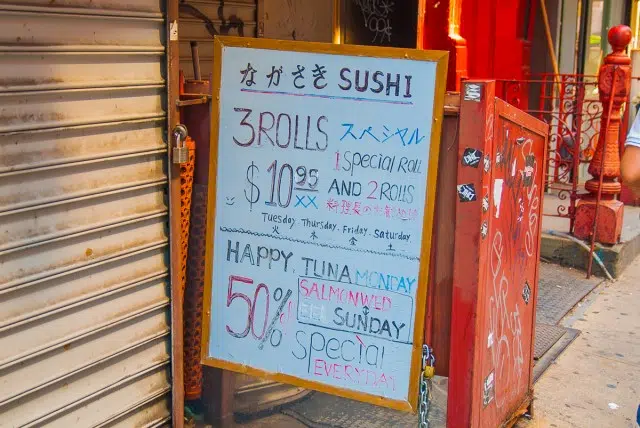 ながさき SUSHI
3ROLLS スペシャル
1 Special ROLL
$10.95 AND 2 ROLLS
XX 料理長の
Tuesday. Thursday. Friday. Saturday
火 木 金 土
HAPPY. TUNA MONDAY
50% SALMON WED
SUNDAY
Special
EVERYDAY